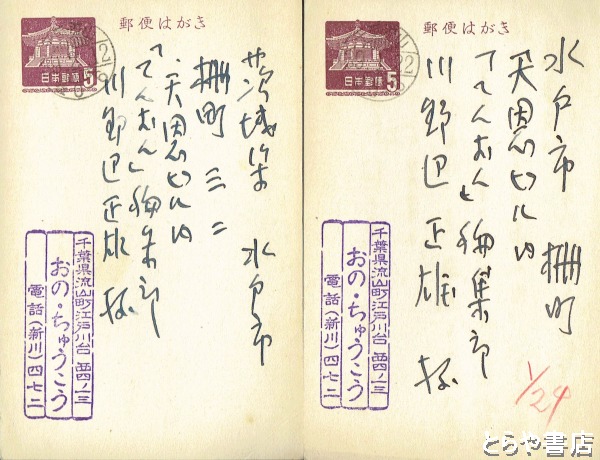 郵便はがき
日本郵便
5
茨城県 水戸市
柵町 三二
天恩ビル内
「てんおん」編集部
川野辺正雄 様
千葉県流山町江戸川台西四ノ一三
おの・ちゅうこう
電話(新川)四七二
郵便はがき
日本郵便
5
水戸市 柵町
天恩ビル内
「てんおん」編集部
川野辺正雄 様
千葉県流山町江戸川台西四ノ一三
おの・ちゅうこう
電話(新川)四七二
1/24
とらや書店